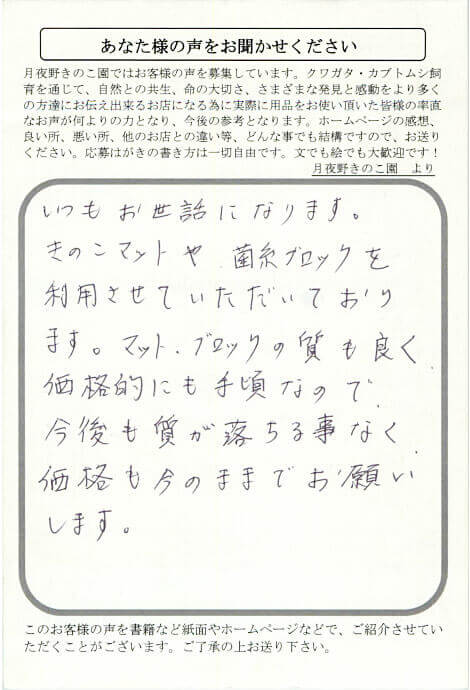 あなた様の声をお聞かせください
月夜野きのこ園ではお客様の声を募集しています。クワガタ・カブトムシ飼
育を通じて、自然との共生、命の大切さ、さまざまな発見と感動をより多く
の方達にお伝え出来るお店になる為に実際に用品をお使い頂いた皆様の率直
なお声が何よりの力となり、今後の参考となります。ホームページの感想、
良い所、悪い所、他のお店との違い等、どんな事でも結構ですので、お送り
ください。応募はがきの書き方は一切自由です。文でも絵でも大歓迎です！
月夜野きのこ園　より
いつもお世話になります。
きのこマットや 菌糸ブロックを
利用させていただいており
ます。マット・ブロックの質も良く
価格的にも手頃なので
今後も質が落ちる事なく
価格も今のままでお願い
します。
このお客様の声を書籍など紙面やホームページなどで、ご紹介させてい
ただくことがございます。ご了承の上お送り下さい。